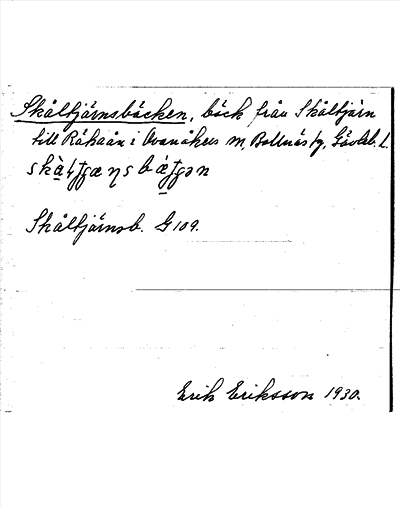 Skåltjärnsbäcken, bäck från Skåltjärn
till Råhaån i Ovanåkers m, Bollnäs tg, Gävleb. l.
Skåltjärnsb. G 109.
Erik Eriksson 1930.